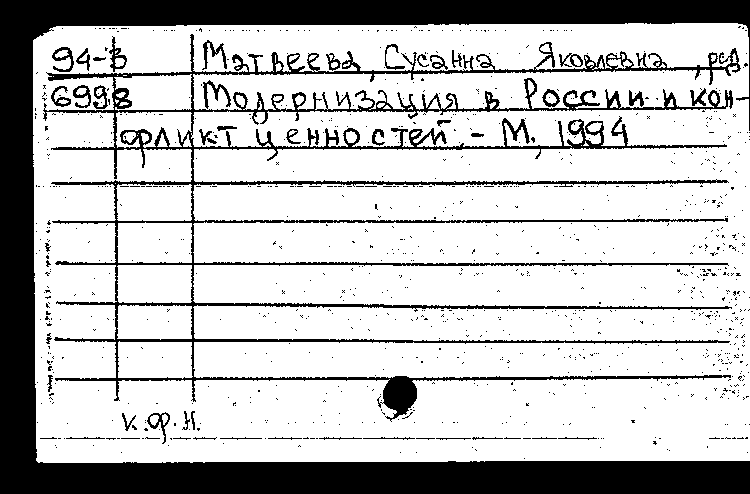 94-В Матвеева, Сусанна Яковлевна, ред.
6998 Модернизация в России и кон-
фликт ценностей. - М., 1994
к.ф.н.